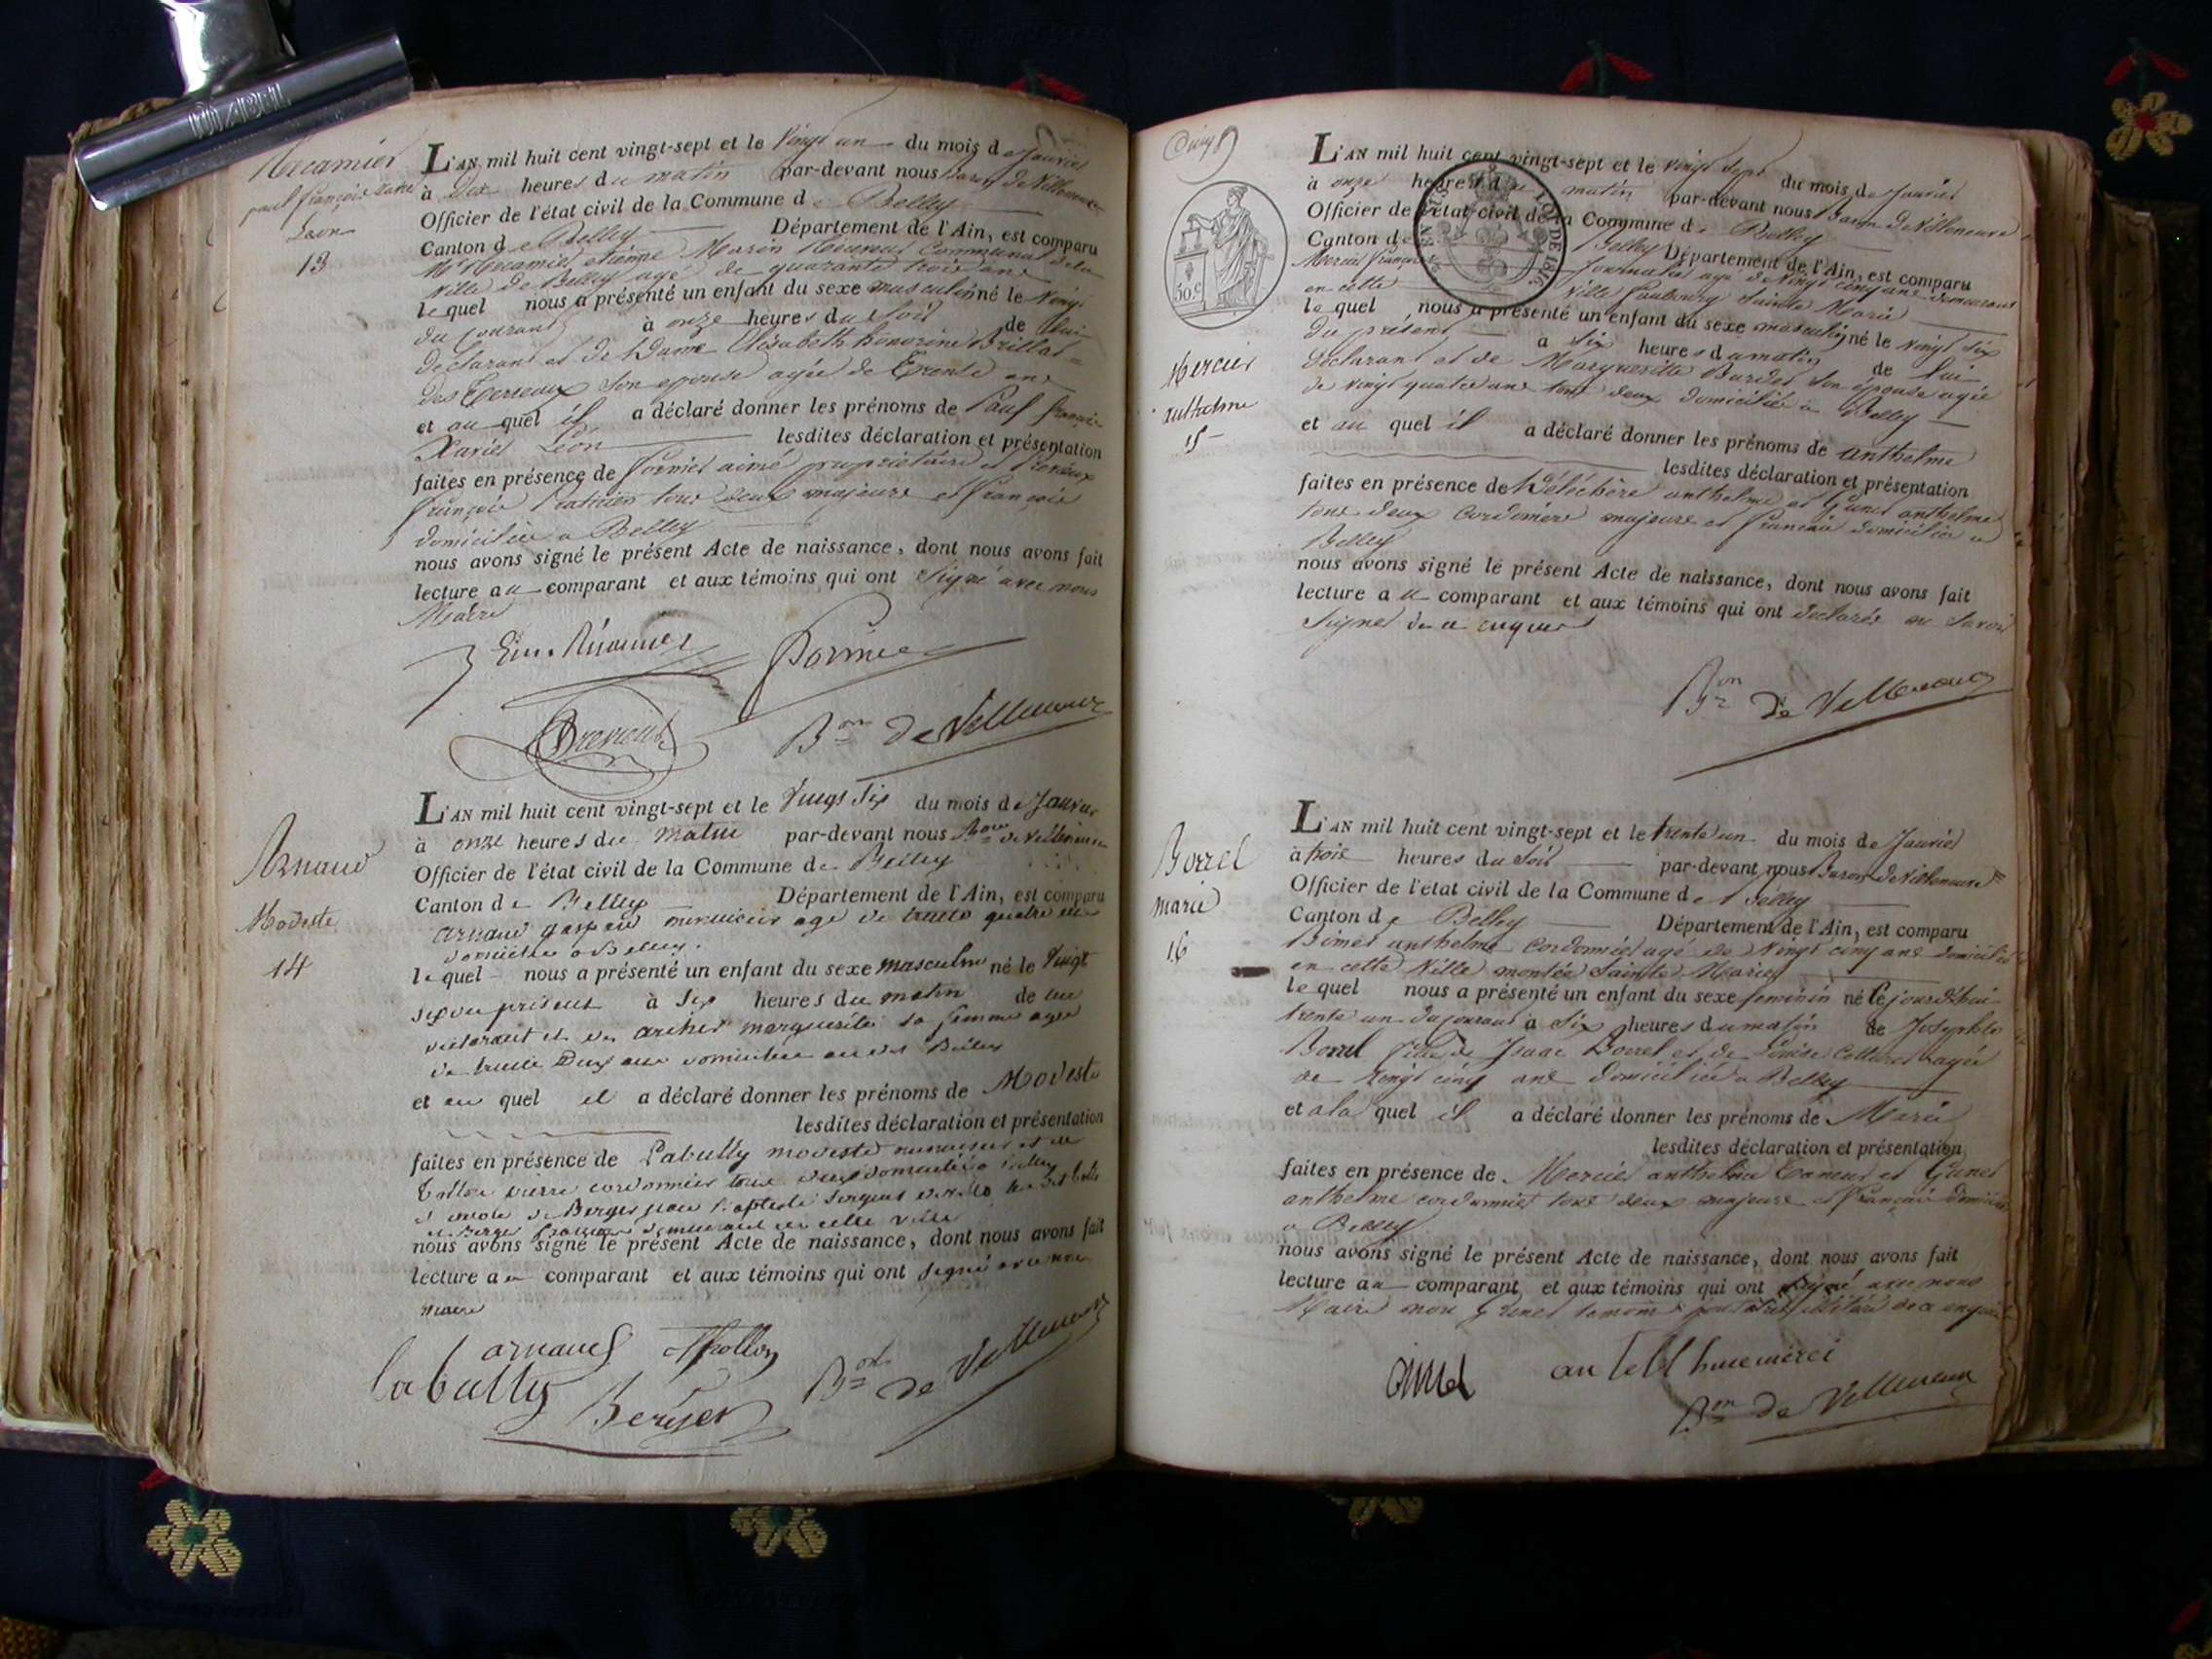 ABEL
Recamier
paul françois xavier
Léon
13
L'AN mil huit cent vingt-sept et le Vingt un du mois de Janvier
à Dix heures du matin par-devant nous Baron de Villeneuve
Officier de l'état civil de la Commune de Belley
Canton de Belley Département de l'Ain, est comparu
Mr Recamier etienne Marin Receveur Communal de la
Ville de Belley agé de quarante trois ans
lequel nous a présenté un enfant du sexe masculin né le Vingt
du courant à onze heures du Soir de lui
déclarant et de Dame Elisabeth honorine Brillat
des Terreaux son epouse agée de Trente ans
et au quel il a déclaré donner les prénoms de Paul françois
Xavier Léon lesdites déclaration et présentation
faites en présence de Pornier aimé propriétaire et
françois praticien tous deux majeurs et françois
domiciliés a Belley
nous avons signé le présent Acte de naissance, dont nous avons fait
lecture au comparant et aux témoins qui ont Signé avec nous
Maire
Bon de Villeneuve
Arnaud
Modeste
14
L'AN mil huit cent vingt-sept et le Vingt Six du mois de Janvier
à onze heures du matin par-devant nous Bon de Villeneuve
Officier de l'état civil de la Commune de Belley
Canton de Belley Département de l'Ain, est comparu
arnaud gaspard menuisier agé de trente quatre ans
domicilié a Belley.
lequel nous a présenté un enfant du sexe masculin né le Vingt
six du present à Six heures du matin de lui
declarant et de archer marguerite sa femme agée
de trente Deux ans domiciliée audit Belley
et au quel il a déclaré donner les prénoms de Modeste
lesdites déclaration et présentation
faites en présence de Labully modeste menuisier et de
pierre cordonnier tous deux domiciliés a Belley
et encore de Berger jean Baptiste
demeurant en cette ville
nous avons signé le présent Acte de naissance, dont nous avons fait
lecture au comparant et aux témoins qui ont signé avec nous
maire
arnaud
labully Berger Bon de Villeneuve
50.c
Mercier
anthelme
15
L'AN mil huit cent vingt-sept et le Vingt Sept du mois de Janvier
à onze heures du matin par-devant nous Baron de Villeneuve
Officier de l'état civil de la Commune de Belley
Canton de Belley Département de l'Ain, est comparu
Mercier françois Journalier agé de Vingt cinq ans demeurant
en cette Ville faubourg Sainte Marie
lequel nous a présenté un enfant du sexe masculin né le Vingt Six
du présent à Six heures du matin de lui
déclarant et de Marguerite Burdet son épouse agée
de Vingt quatre ans tous deux domiciliés à Belley
et au quel il a déclaré donner les prénoms de anthelme
lesdites déclaration et présentation
faites en présence de anthelme et anthelme
tous deux cordoniers majeurs et français domiciliés a
Belley
nous avons signé le présent Acte de naissance, dont nous avons fait
lecture au comparant et aux témoins qui ont déclarés ne Savoir
Signer de ce enquis
Bon de Villeneuve
Borrel
marie
16
L'AN mil huit cent vingt-sept et le trente un du mois de Janvier
à trois heures du Soir par-devant nous Baron de Villeneuve
Officier de l'état civil de la Commune de Belley
Canton de Belley Département de l'Ain, est comparu
anthelme Cordonnier agé de Vingt cinq ans domicilié
en cette Ville montée Sainte Marie
lequel nous a présenté un enfant du sexe feminin né Cejourd'hui
trente un du courant à Six heures du matin de Josephte
Borrel fille de Isaac Borrel et de agée
de Vingt cinq ans domiciliée a Belley
et a la quel il a déclaré donner les prénoms de Marie
lesdites déclaration et présentation
faites en présence de Mercier anthelme Taneur et
anthelme cordonnier tous deux majeurs et Français domiciliés
a Belley
nous avons signé le présent Acte de naissance, dont nous avons fait
lecture au comparant et aux témoins qui ont Signé avec nous
Maire
Bon de Villeneuve